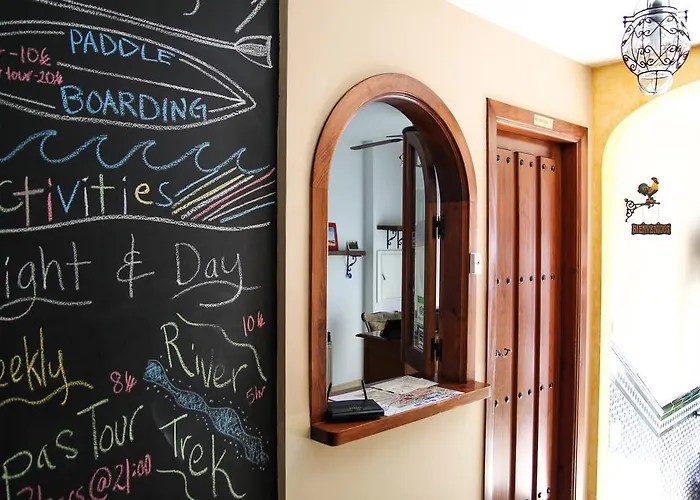 PADDLE
-10€
tour-20€
BOARDING
ctivities
ight & Day
10€
River
5hr
eekly
8€
Trek
pas Tour
hours@21:00
BIENVENIDOS